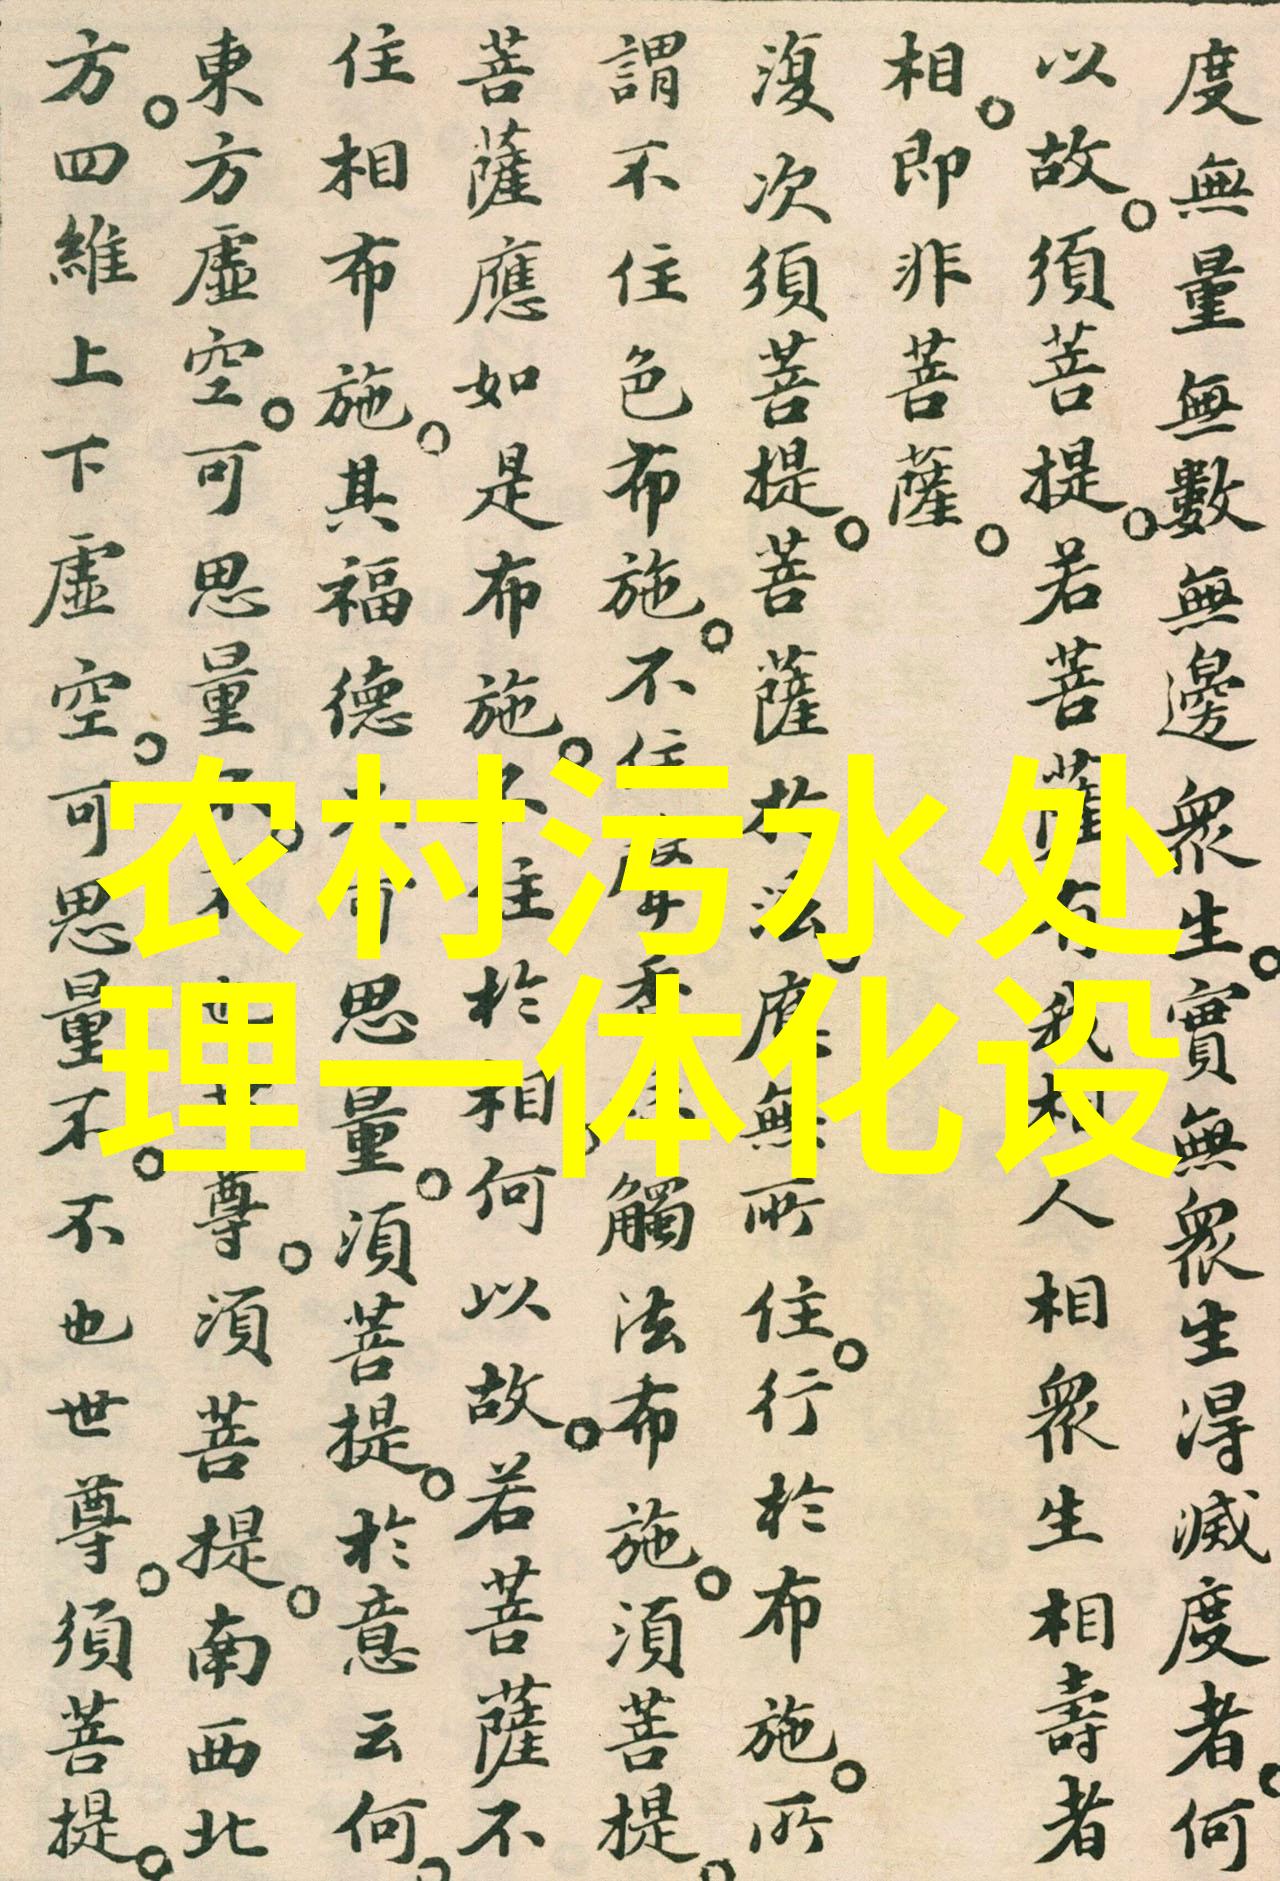 度無量無數無邊衆生。實無衆生得滅度者。何
以故。須菩提。若菩薩有我相人相衆生相壽者
相。即非菩薩。
復次須菩提。菩薩於法。應無所住。行於布施。所
謂不住色布施。不住聲香味觸法布施。須菩提。
菩薩應如是布施。不住於相。何以故。若菩薩不
住相布施。其福德不可思量。須菩提。於意云何。
東方虛空。可思量不。不也世尊。須菩提。南西北
方。四維上下虛空。可思量不。不也世尊。須菩提。
农村污水处
理一体化设